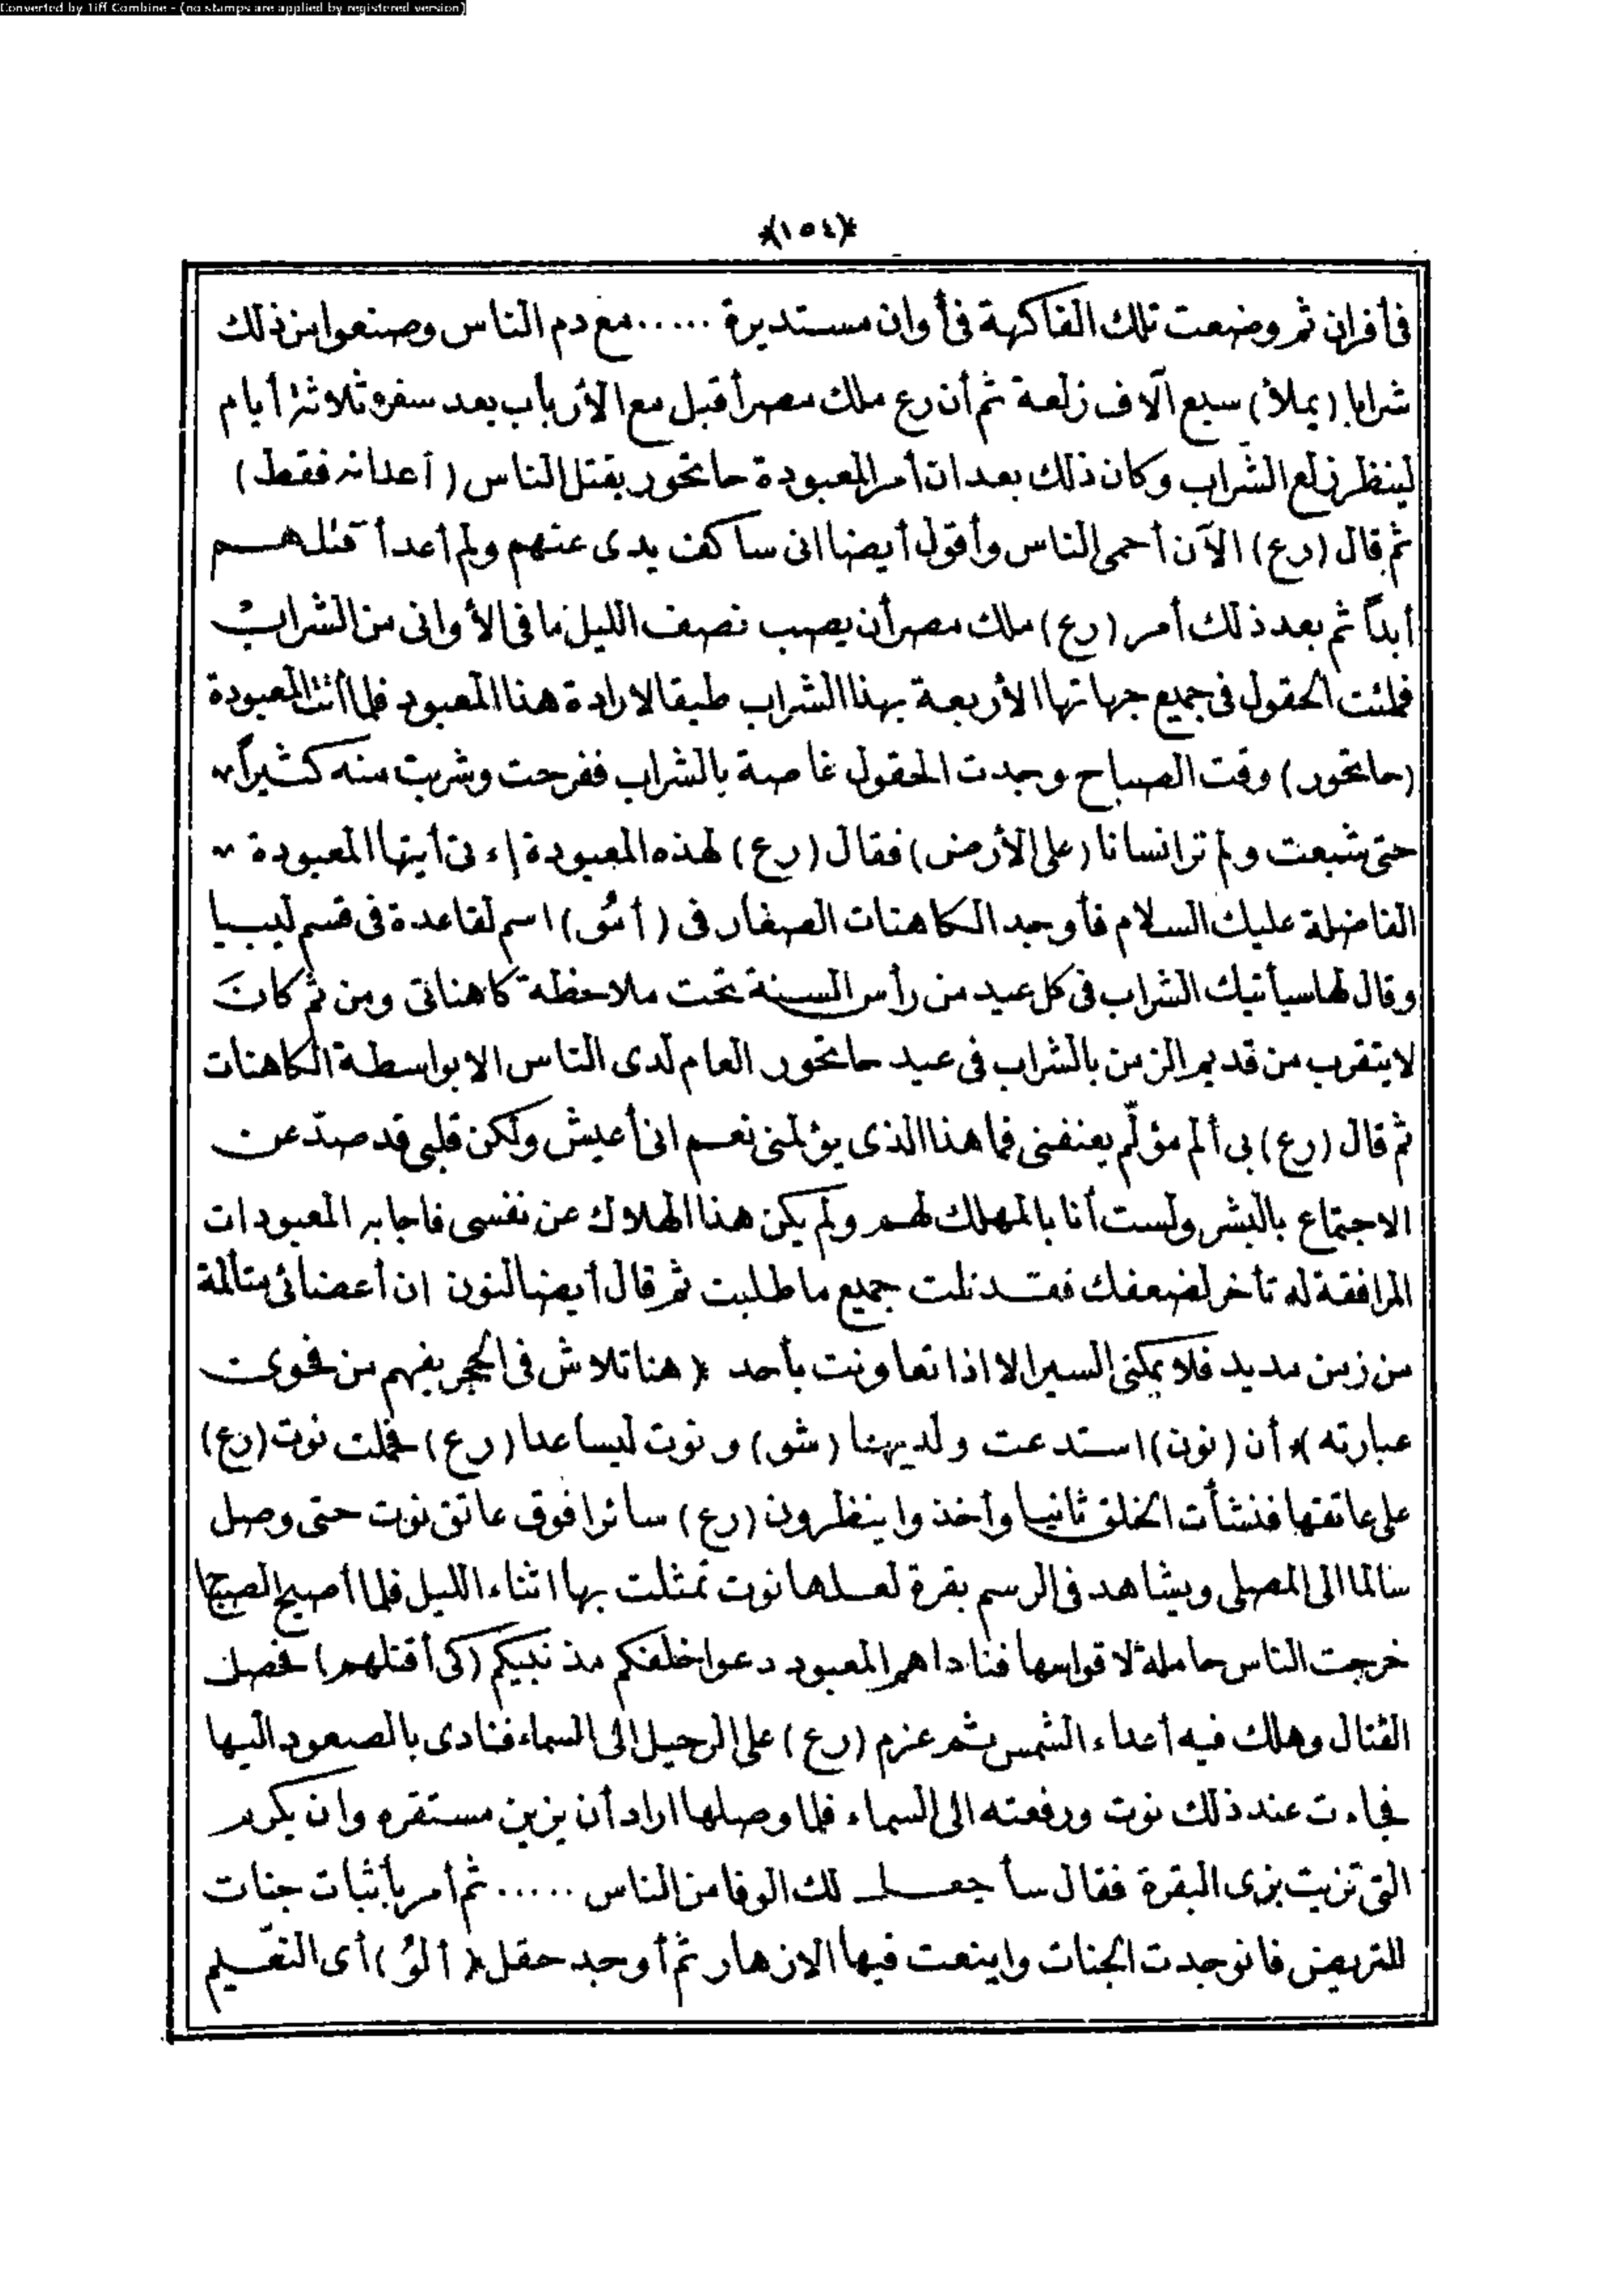 Converted by Tiff Combine - (no stamps are applied by registered version)
*(١٥٤)*
فى أفران ثم وضعت تلك الفاكهة فى أوان مستديرة ..... مع دم الناس وصنعوا من ذلك
شرابا (يملأ) سبع آلاف زلعة ثم أن رع ملك مصر أقبل مع الأرباب بعد سفره ثلاثة أيام
لينظر زلع الشراب وكان ذلك بعد ان أمر المعبودة حاتحور بقتل الناس (أعدائه فقط)
ثم قال (رع) الآن أحمى الناس وأقول أيضا انى سأكف يدى عنهم ولم أعد أقتلهم
أبداً ثم بعد ذلك أمر (رع) ملك مصر أن يصب نصف الليل ما فى الأوانى من الشراب
فملئت الحقول فى جميع جهاتها الأربعة بهذا الشراب طبقا لارادة هذا المعبود فلما أتت المعبودة
(حاتحور) وقت الصباح وجدت الحقول غاصة بالشراب ففرحت وشربت منه كثيراً
حتى شبعت ولم تر انسانا (على الأرض) فقال (رع) لهذه المعبودة إءتى أيتها المعبودة
الفاضلة عليك السلام فأوجد الكاهنات الصغار فى (أمُّو) اسم لقاعدة فى قسم ليبيا
وقال لها سيأتيك الشراب فى كل عيد من رأس السنة تحت ملاحظة كاهناتى ومن ثم كان
لا يتقرب من قديم الزمن بالشراب فى عيد حاتحور العام لدى الناس الا بواسطة الكاهنات
ثم قال (رع) بى ألم مؤلّم يعنفنى فما هذا الذى يؤلمنى نعم انى أعيش ولكن قلبى قد صدّ عن
الاجتماع بالبشر ولست أنا بالمهلك لهم ولم يكن هذا الهلاك عن نفسى فاجابه المعبودات
المرافقة له تأخر لضعفك فقد نلت جميع ما طلبت ثم قال أيضا لنون ان أعضائى متألمة
من زمن مديد فلا يمكنى السير الا اذا تعاونت بأحد * (هنا تلاش فى الحجر يفهم من فحوى
عبارته)* أن (نون) استدعت ولديها (شو) ونوت ليساعدا (رع) فحملت نوت (رع)
على عاتقها فنشأت الخلق ثانيا وأخذوا ينظرون (رع) سائرا فوق عاتق نوت حتى وصل
سالما الى المصلى ويشاهد فى الرسم بقرة لعلها نوت تمثلت بها اثناء الليل فلما أصبح الصباح
خرجت الناس حاملة لاقواسها فناداهم المعبود دعوا خلفكم مذنبيكم (كى أقتلهم) فحصل
القتال وهلك فيه أعداء الشمس ثم عزم (رع) على الرحيل الى السماء فنادى بالصعود اليها
فجاءت عند ذلك نوت ورفعته الى السماء فلما وصلها اراد أن يزين مستقره وان يكرم
التى تزيت بزى البقرة فقال سأجعل لك الوفا من الناس ..... ثم أمر بأثبات جنات
للتريض فانوجدت الجنات واينعت فيها الازهار ثم أوجد حقل (ألوُ) أى النعيم